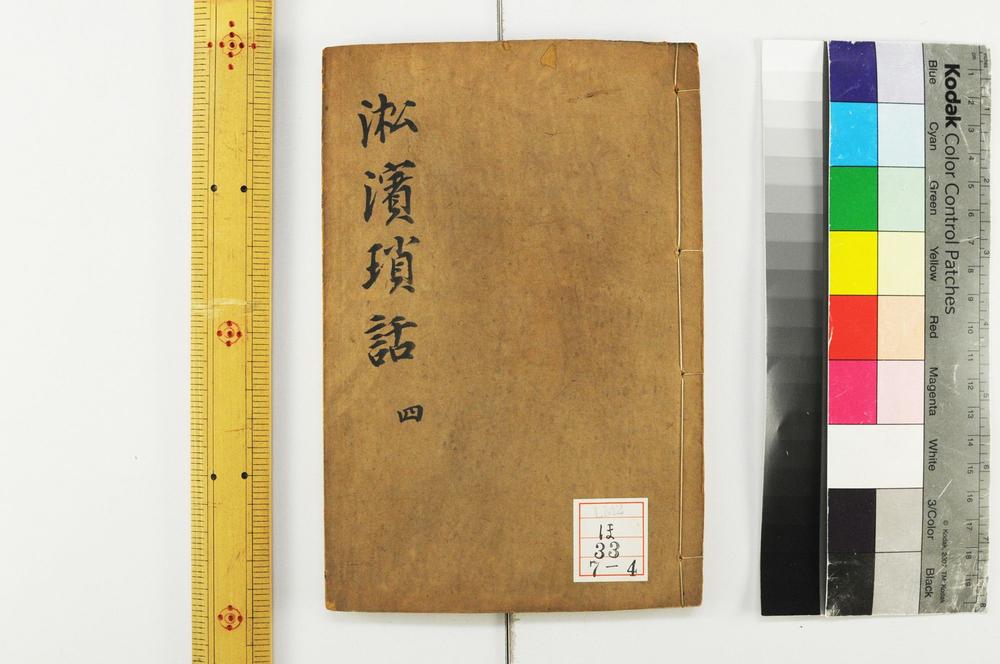 淞濱瑣話
四
ほ
33
7-4
Kodak Color Control Patches
Blue
Cyan
Green
Yellow
Red
Magenta
White
3/Color
Black
© Kodak, 2007 TM: Kodak
1
2
3
4
5
6
7
8
9
10
11
12
13
14
15
16
17
18
19
1
2
3
4
5
6
7
8